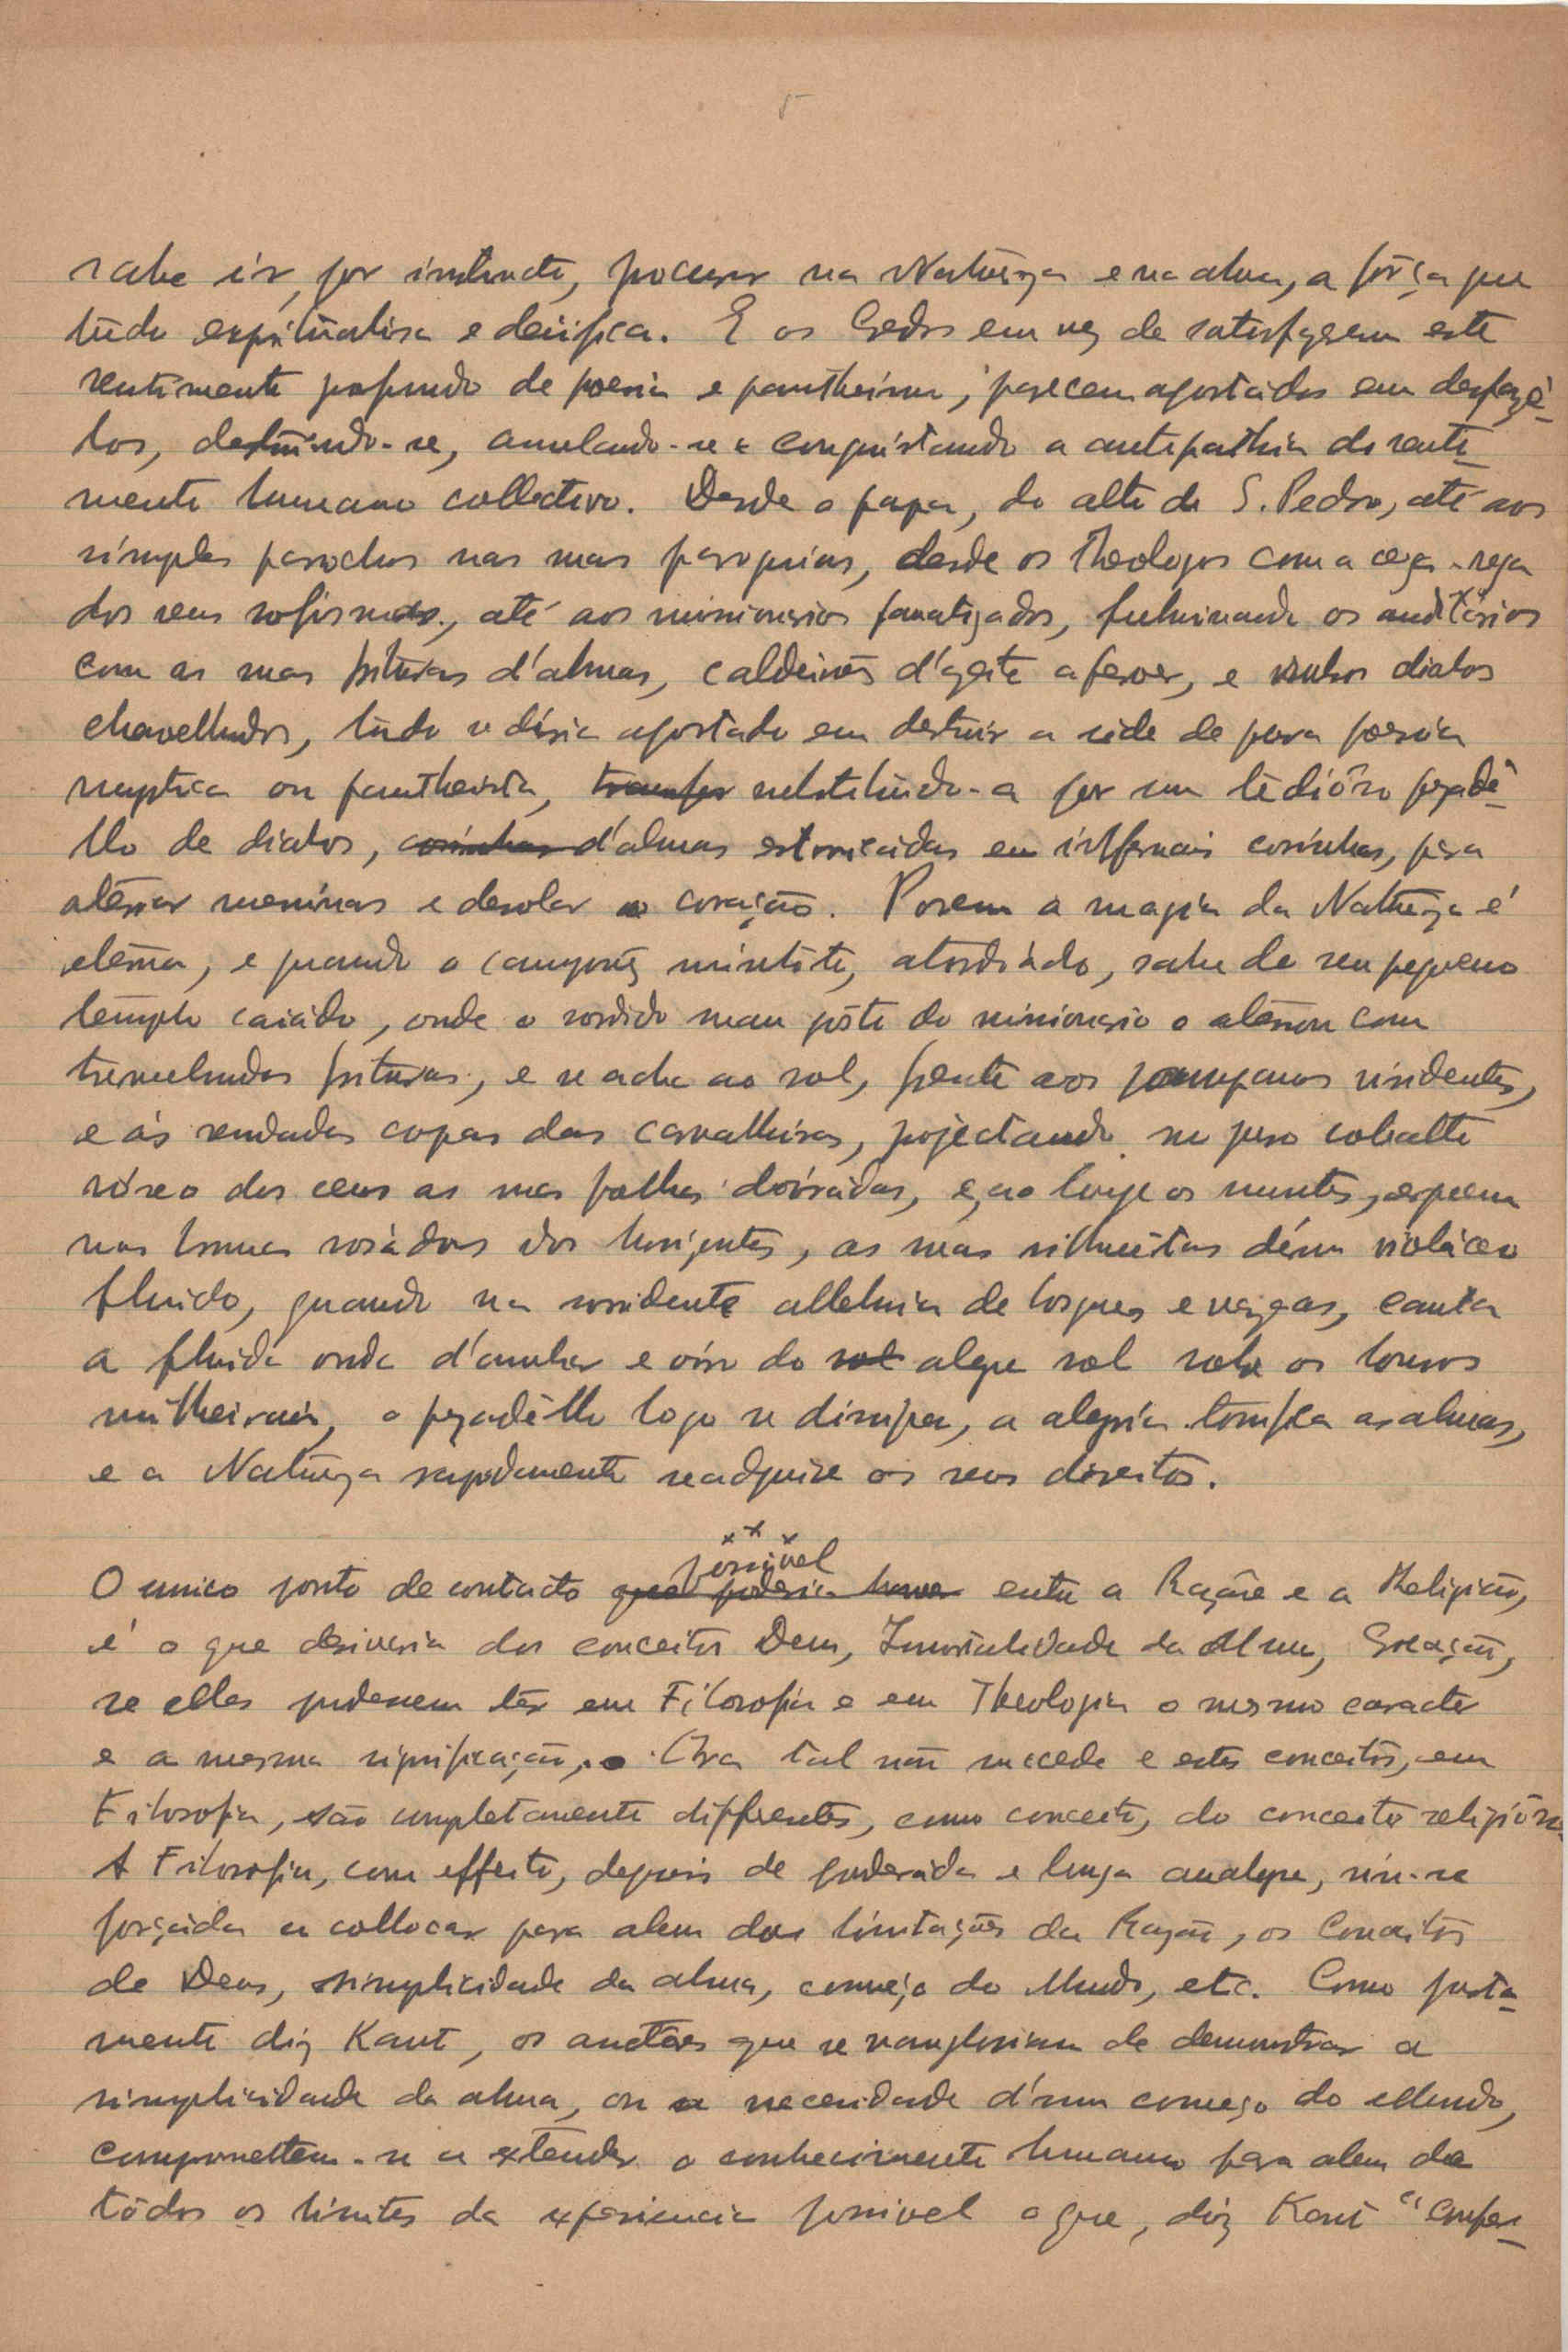 5
sabe ir, por instincto, procurar na Natureza e na alma, a fôrça que
tudo espiritualisa e deifica. E os Credos em vez de satisfazerem este
sentimento profundo de poesia e pantheismo, parecem apostados em desfazê-
los, destruindo-se, anulando-se e conquistando a antipathia do senti-
mento humano collectivo. Desde o papa, do alto de S. Pedro, até aos
simples parochos nas suas paroquias, desde os Theologos com a cega-rega
dos seus sofismas, até aos missionarios fanatizados, fulminando os auditórios
com as suas frituras d'almas, caldeirões d'azeite a ferver, e diabos
chavelhudos, tudo se diria apostado em destruir a sêde de pura poesia
mystica ou pantheista, substituindo-a por um tediôso pezadê-
llo de diabos, d'almas estorricadas em infernais cosinhas, para
aterrar meninas e desolar o coração. Porem a magia da Natureza é
eterna, e quando o camponez, atordoado, sahe do seu pequeno
templo caiado, onde o sordido mau gôsto do missionario o aterrou com
tremebundas frituras, e se acha ao sol, frente aos pampanos ridentes,
e ás rendadas copas das carvalheiras, projectando no puro cobalto
róseo dos ceus as suas folhas doiradas, e, ao longe os montes, erguem
nas brumas rosadas dos horizontes, as suas silhuetas d'um violáceo
fluido, quando na sorridente alleluia de bosques e veigas, canta
a fluida onda d'ambar e oiro do sol alegre sol sobre os louros
milheirais, o pezadêllo logo se dissipa, a alegria tonifica as almas,
e a Natureza rapidamente readquire os seus direitos.
x x x
possivel
O unico ponto de contacto que poderia haver entre a Razão e a Religião,
é o que derivaria dos conceitos Deus, Immortalidade da Alma, Creação,
se elles podessem ter em Filosofia e em Theologia o mesmo caracter
e a mesma significação. Ora tal não succede e estes conceitos, em
Filosofia, são completamente differentes, como conceito, do conceito religiôso.
A Filosofia, com effeito, depois de ponderada e longa analyse, viu-se
forçada a collocar para alem das limitações da Razão, os Conceitos
de Deus, simplicidade da alma, começo do Mundo, etc. Como justa-
mente diz Kant, os auctôres que se vangloriam de demonstrar a
simplicidade da alma, ou a necessidade d'um começo do Mundo,
compromettem-se a extender o conhecimento humano para alem de
tôdos os limites da experiencia possivel o que, diz Kant "confes-